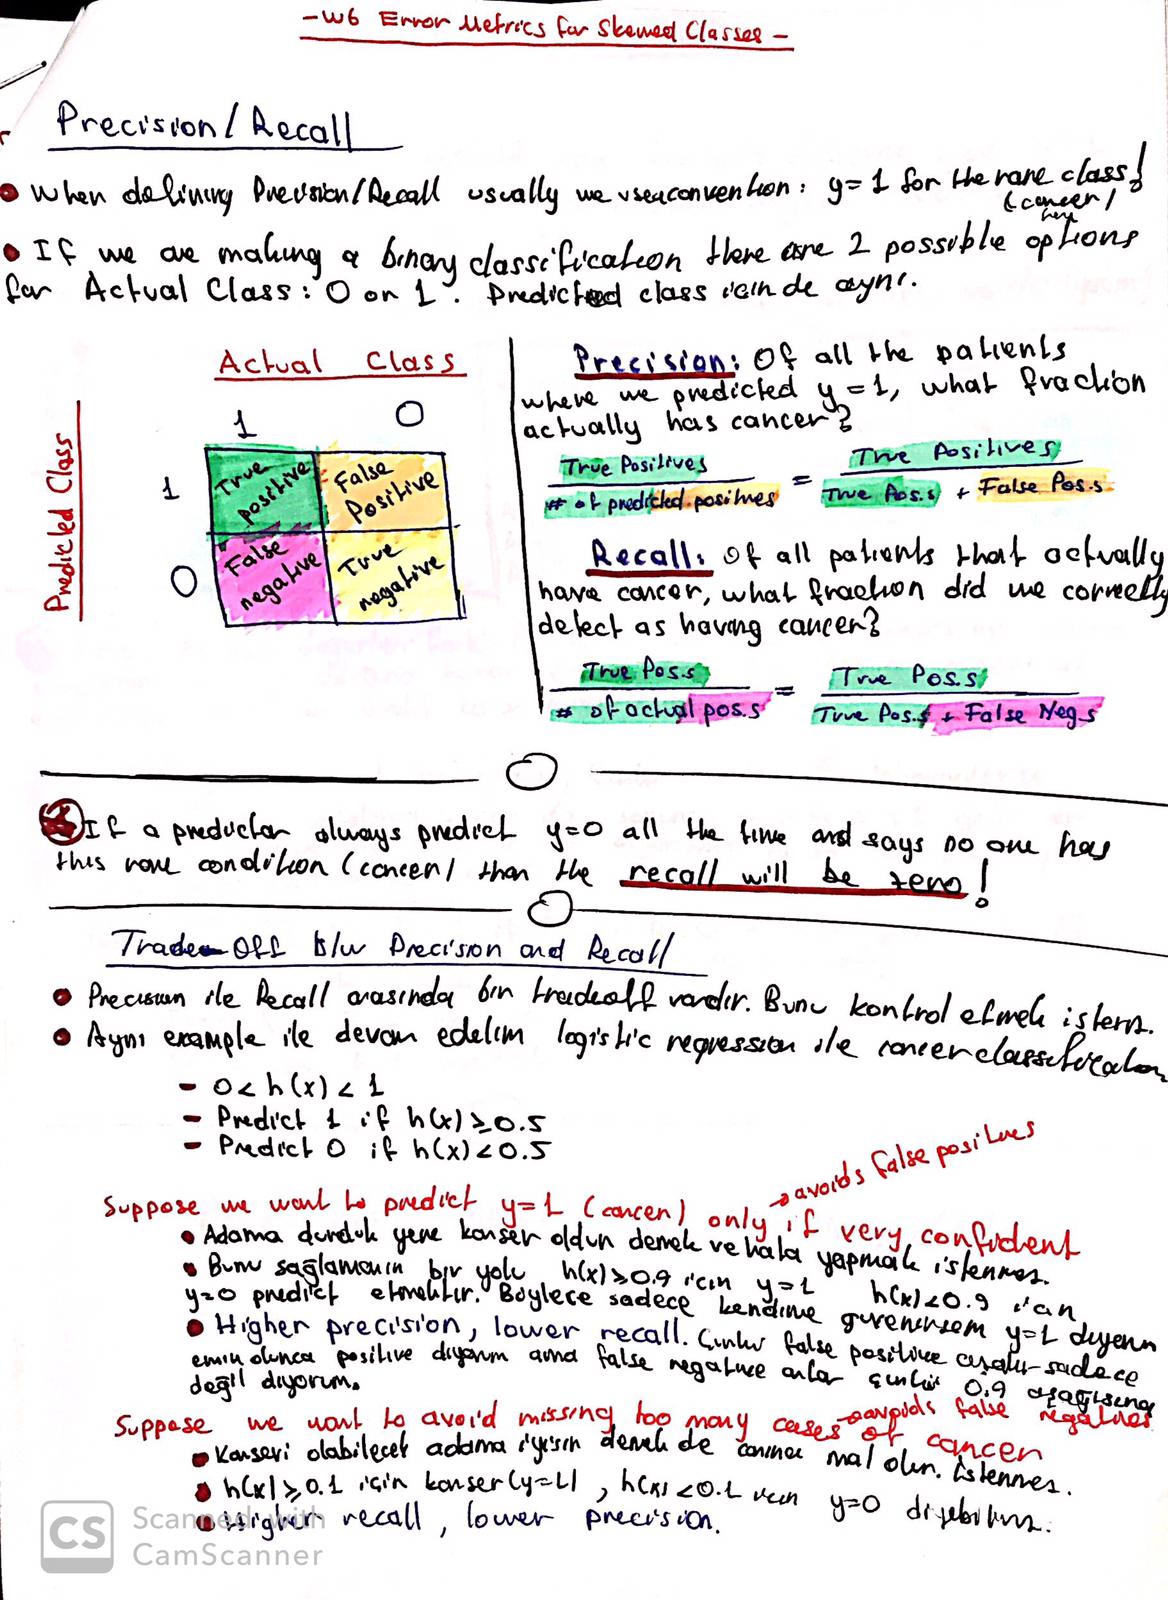 -W6 Error Metrics for Skewed Classes-
Precision/Recall
• When defining Precision/Recall usually we use a convention: y=1 for the rare class!
(cancer)
here
• If we are making a binary classification there are 2 possible options
for Actual Class: 0 or 1. Predicted class icin de aynı.
Actual Class
1 0
Predicted Class
1
True positive
False Positive
0
False negative
True negative
Precision: Of all the patients
where we predicted y=1, what fraction
actually has cancer?
True Positives
# of predicted positives
=
True Positives
True Pos.s + False Pos.s
Recall: Of all patients that actually
have cancer, what fraction did we correctly
detect as having cancer?
True Pos.s
# of actual pos.s
=
True Pos.s
True Pos.s + False Neg.s
If a predictor always predict y=0 all the time and says no one has
this rare condition (cancer) than the recall will be zero!
Trade-Off b/w Precision and Recall
• Precision ile Recall arasında bir tradeoff vardır. Bunu kontrol etmek isteriz.
• Aynı example ile devam edelim logistic regression ile cancer classification
- 0 < h(x) < 1
- Predict 1 if h(x) ≥ 0.5
- Predict 0 if h(x) < 0.5
Suppose we want to predict y=1 (cancer) only if very confident
→ avoids false positives
• Adama durduk yere kanser oldun demek ve hata yapmak istenmez.
• Bunu sağlamanın bir yolu h(x) ≥ 0.9 icin y=1 h(x) < 0.9 icin
y=0 predict etmektir. Böylece sadece kendime güvenirsem y=1 diyorum
• Higher precision, lower recall. Çünkü false positive azalır sadece
emin olunca positive diyorum ama false negative artar çünkü 0.9 aşağısına
değil diyorum.
Suppose we want to avoid missing too many cases of cancer
→ avoids false negatives
• Kanseri olabilecek adama iyisin demek de canına mal olur. İstenmez.
• h(x) ≥ 0.1 için kanser (y=1), h(x) < 0.1 için y=0 diyebiliriz.
• Higher recall, lower precision.
CS
Scanned with
CamScanner